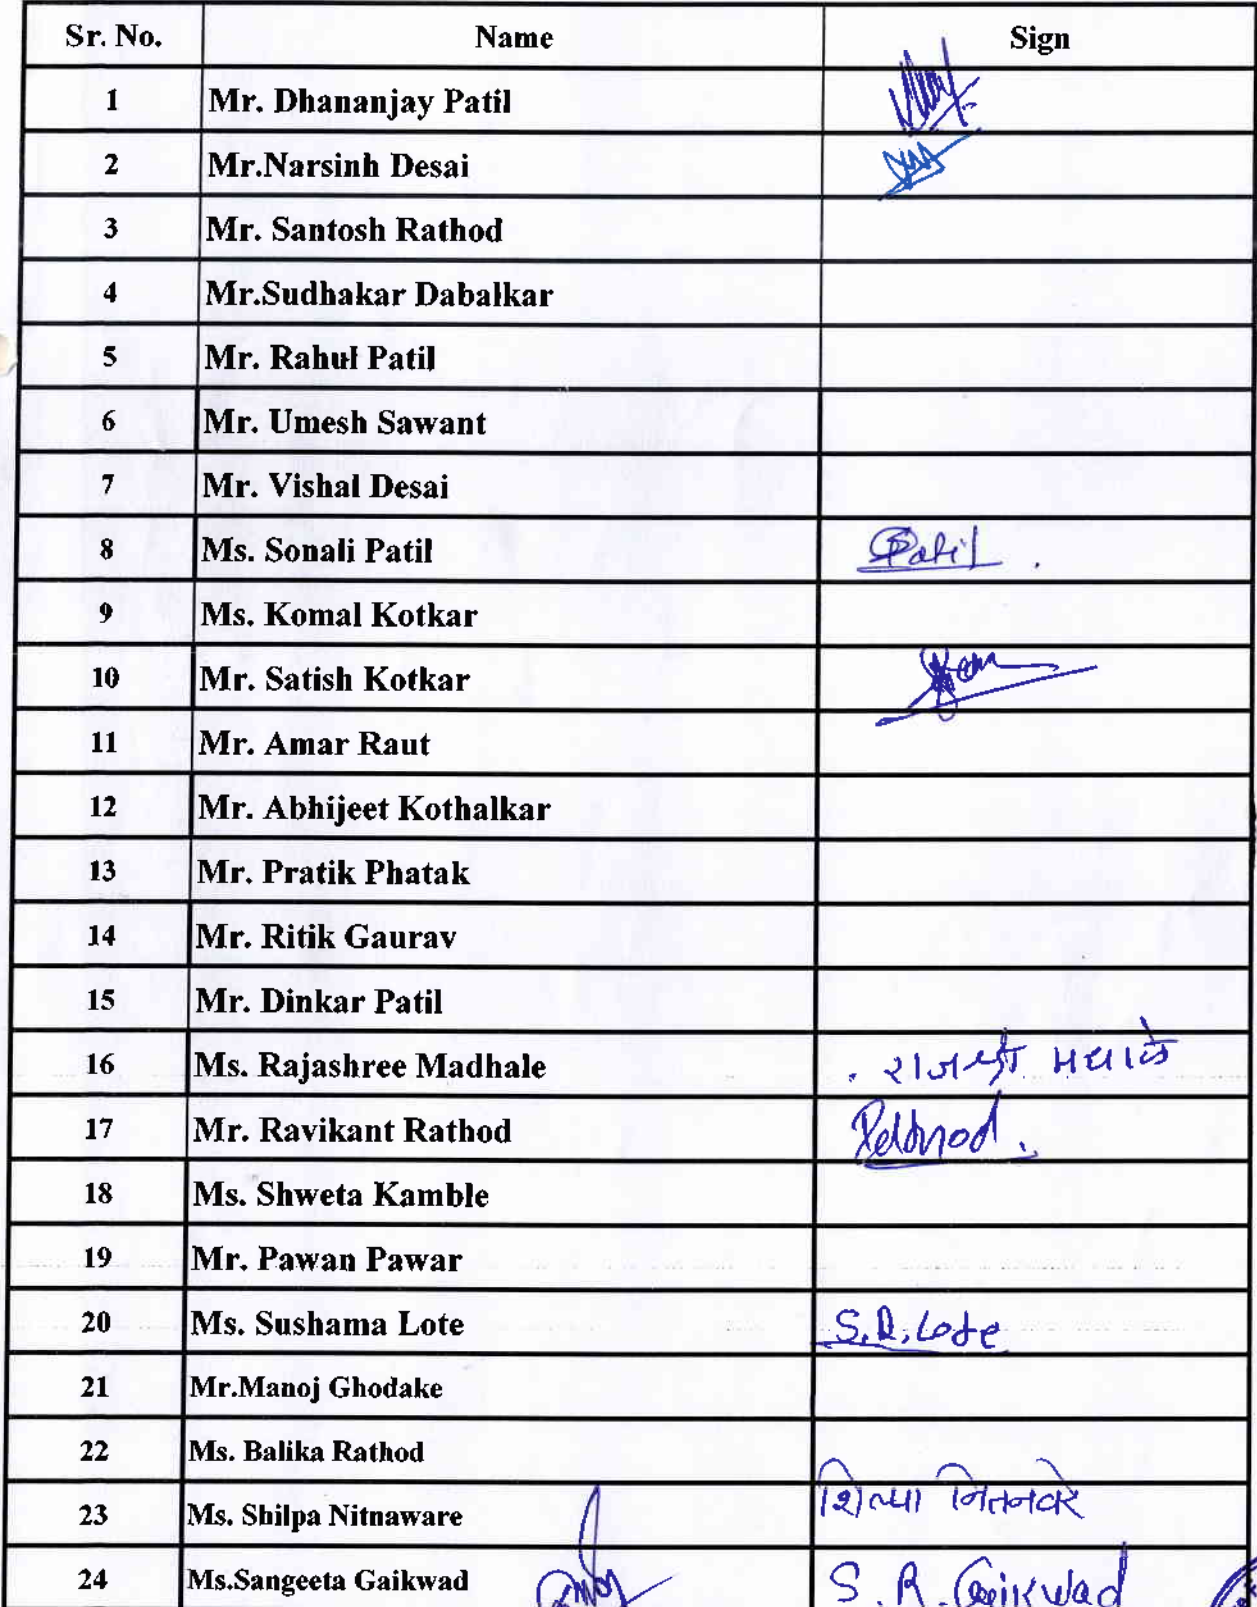 Sr. No. Name Sign
1 Mr. Dhananjay Patil
2 Mr.Narsinh Desai
3 Mr. Santosh Rathod
4 Mr.Sudhakar Dabalkar
5 Mr. Rahul Patil
6 Mr. Umesh Sawant
7 Mr. Vishal Desai
8 Ms. Sonali Patil SPatil.
9 Ms. Komal Kotkar
10 Mr. Satish Kotkar
11 Mr. Amar Raut
12 Mr. Abhijeet Kothalkar
13 Mr. Pratik Phatak
14 Mr. Ritik Gaurav
15 Mr. Dinkar Patil
16 Ms. Rajashree Madhale राजश्री मधाळे
17 Mr. Ravikant Rathod
18 Ms. Shweta Kamble
19 Mr. Pawan Pawar
20 Ms. Sushama Lote S.R.Lote
21 Mr.Manoj Ghodake
22 Ms. Balika Rathod
23 Ms. Shilpa Nitnaware शिल्पा नितनवरे
24 Ms.Sangeeta Gaikwad S.R.Gaikwad